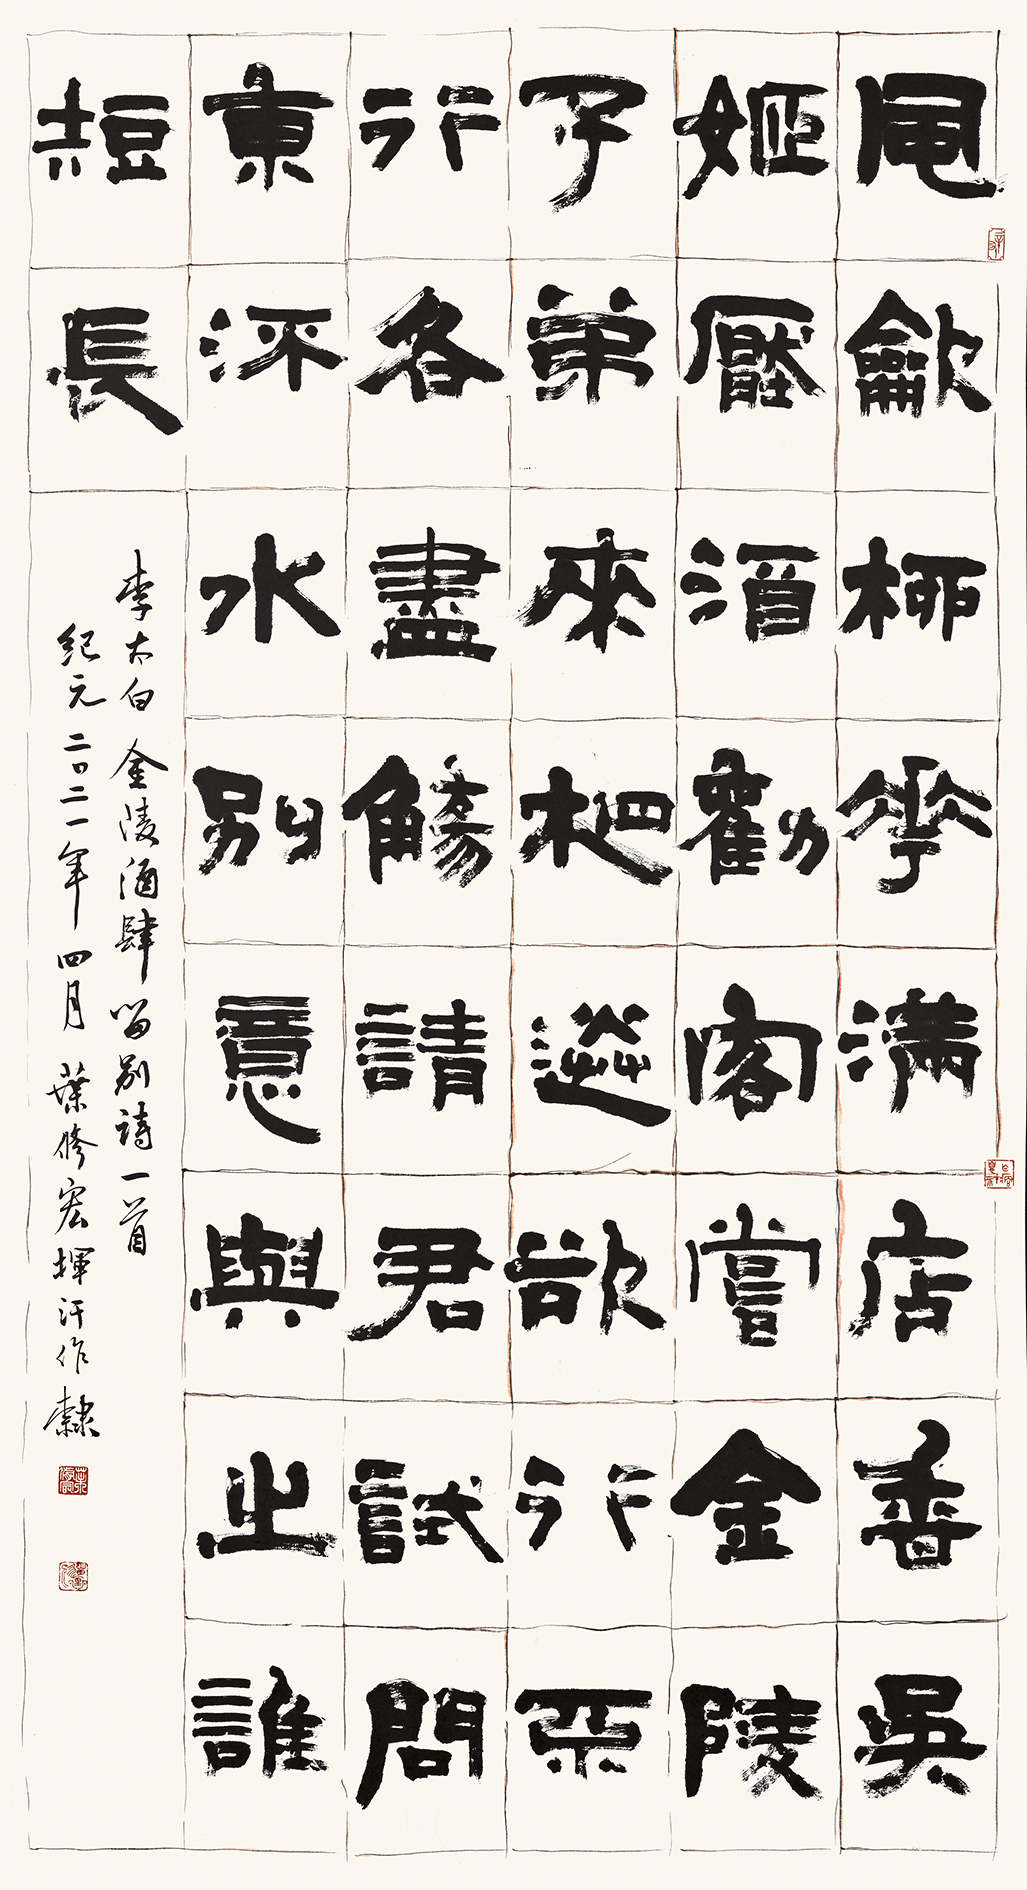 風龡柳花滿店香吳
姬壓酒勸客嘗金陵
子弟來相送欲行不
行各盡觴請君試問
東流水別意與之誰
短長
李太白 金陵酒肆留別詩一首
紀元二〇二一年四月 葉修宏揮汗作隸